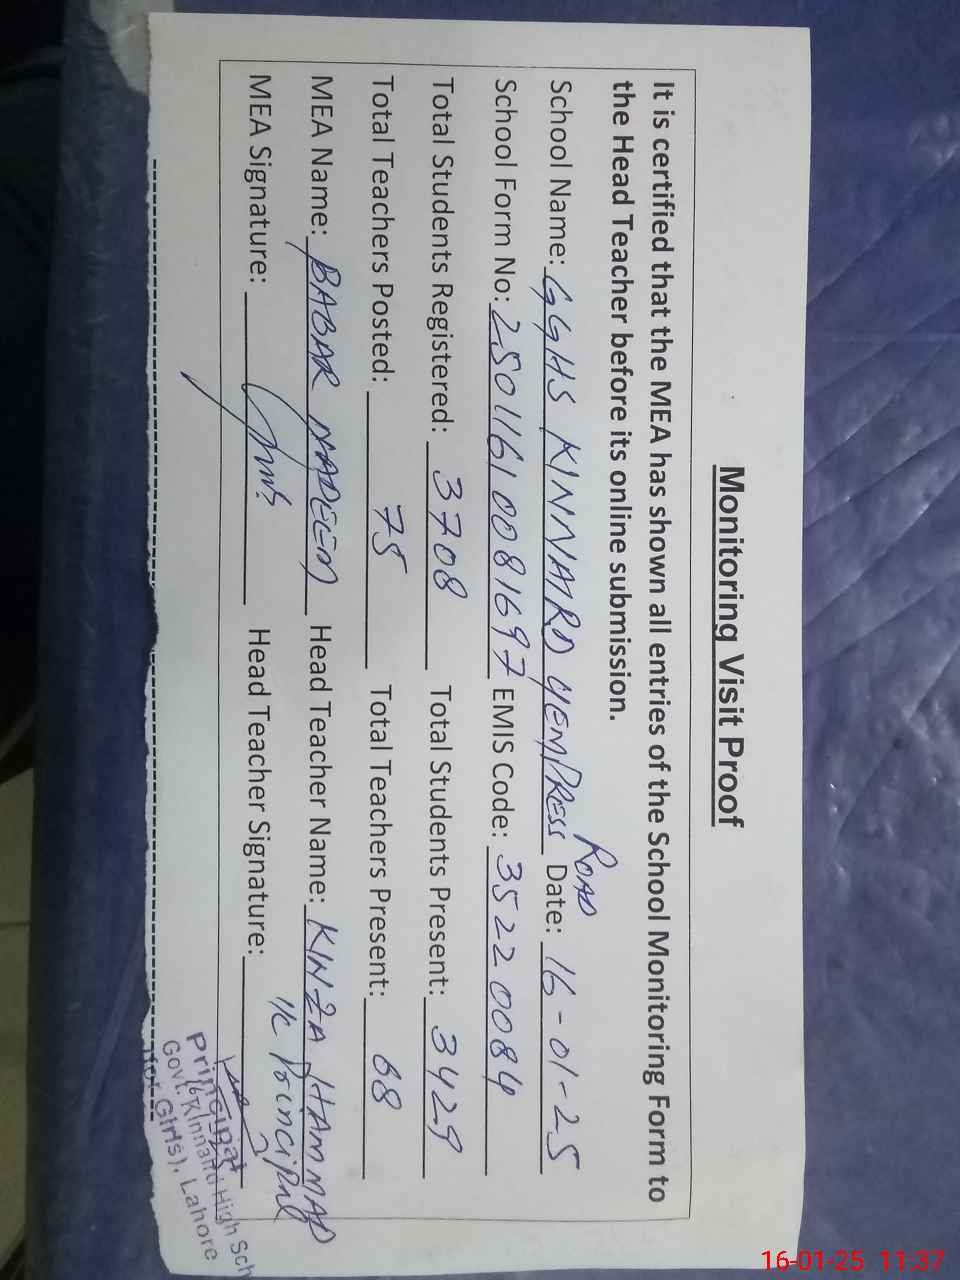 Monitoring Visit Proof
It is certified that the MEA has shown all entries of the School Monitoring Form to
the Head Teacher before its online submission.
School Name: GGHS KINNAIRD YEMPRESS ROAD Date: 16-01-25
School Form No: 25011610081697 EMIS Code: 35220084
Total Students Registered: 3708 Total Students Present: 3429
Total Teachers Posted: 75 Total Teachers Present: 68
MEA Name: BABAR NADEEM Head Teacher Name: KINZA HAMMAD
I/C Principal
MEA Signature: Head Teacher Signature:
Principal
Govt. Kinnaird High Sch
for Girls), Lahore
16-01-25 11:37